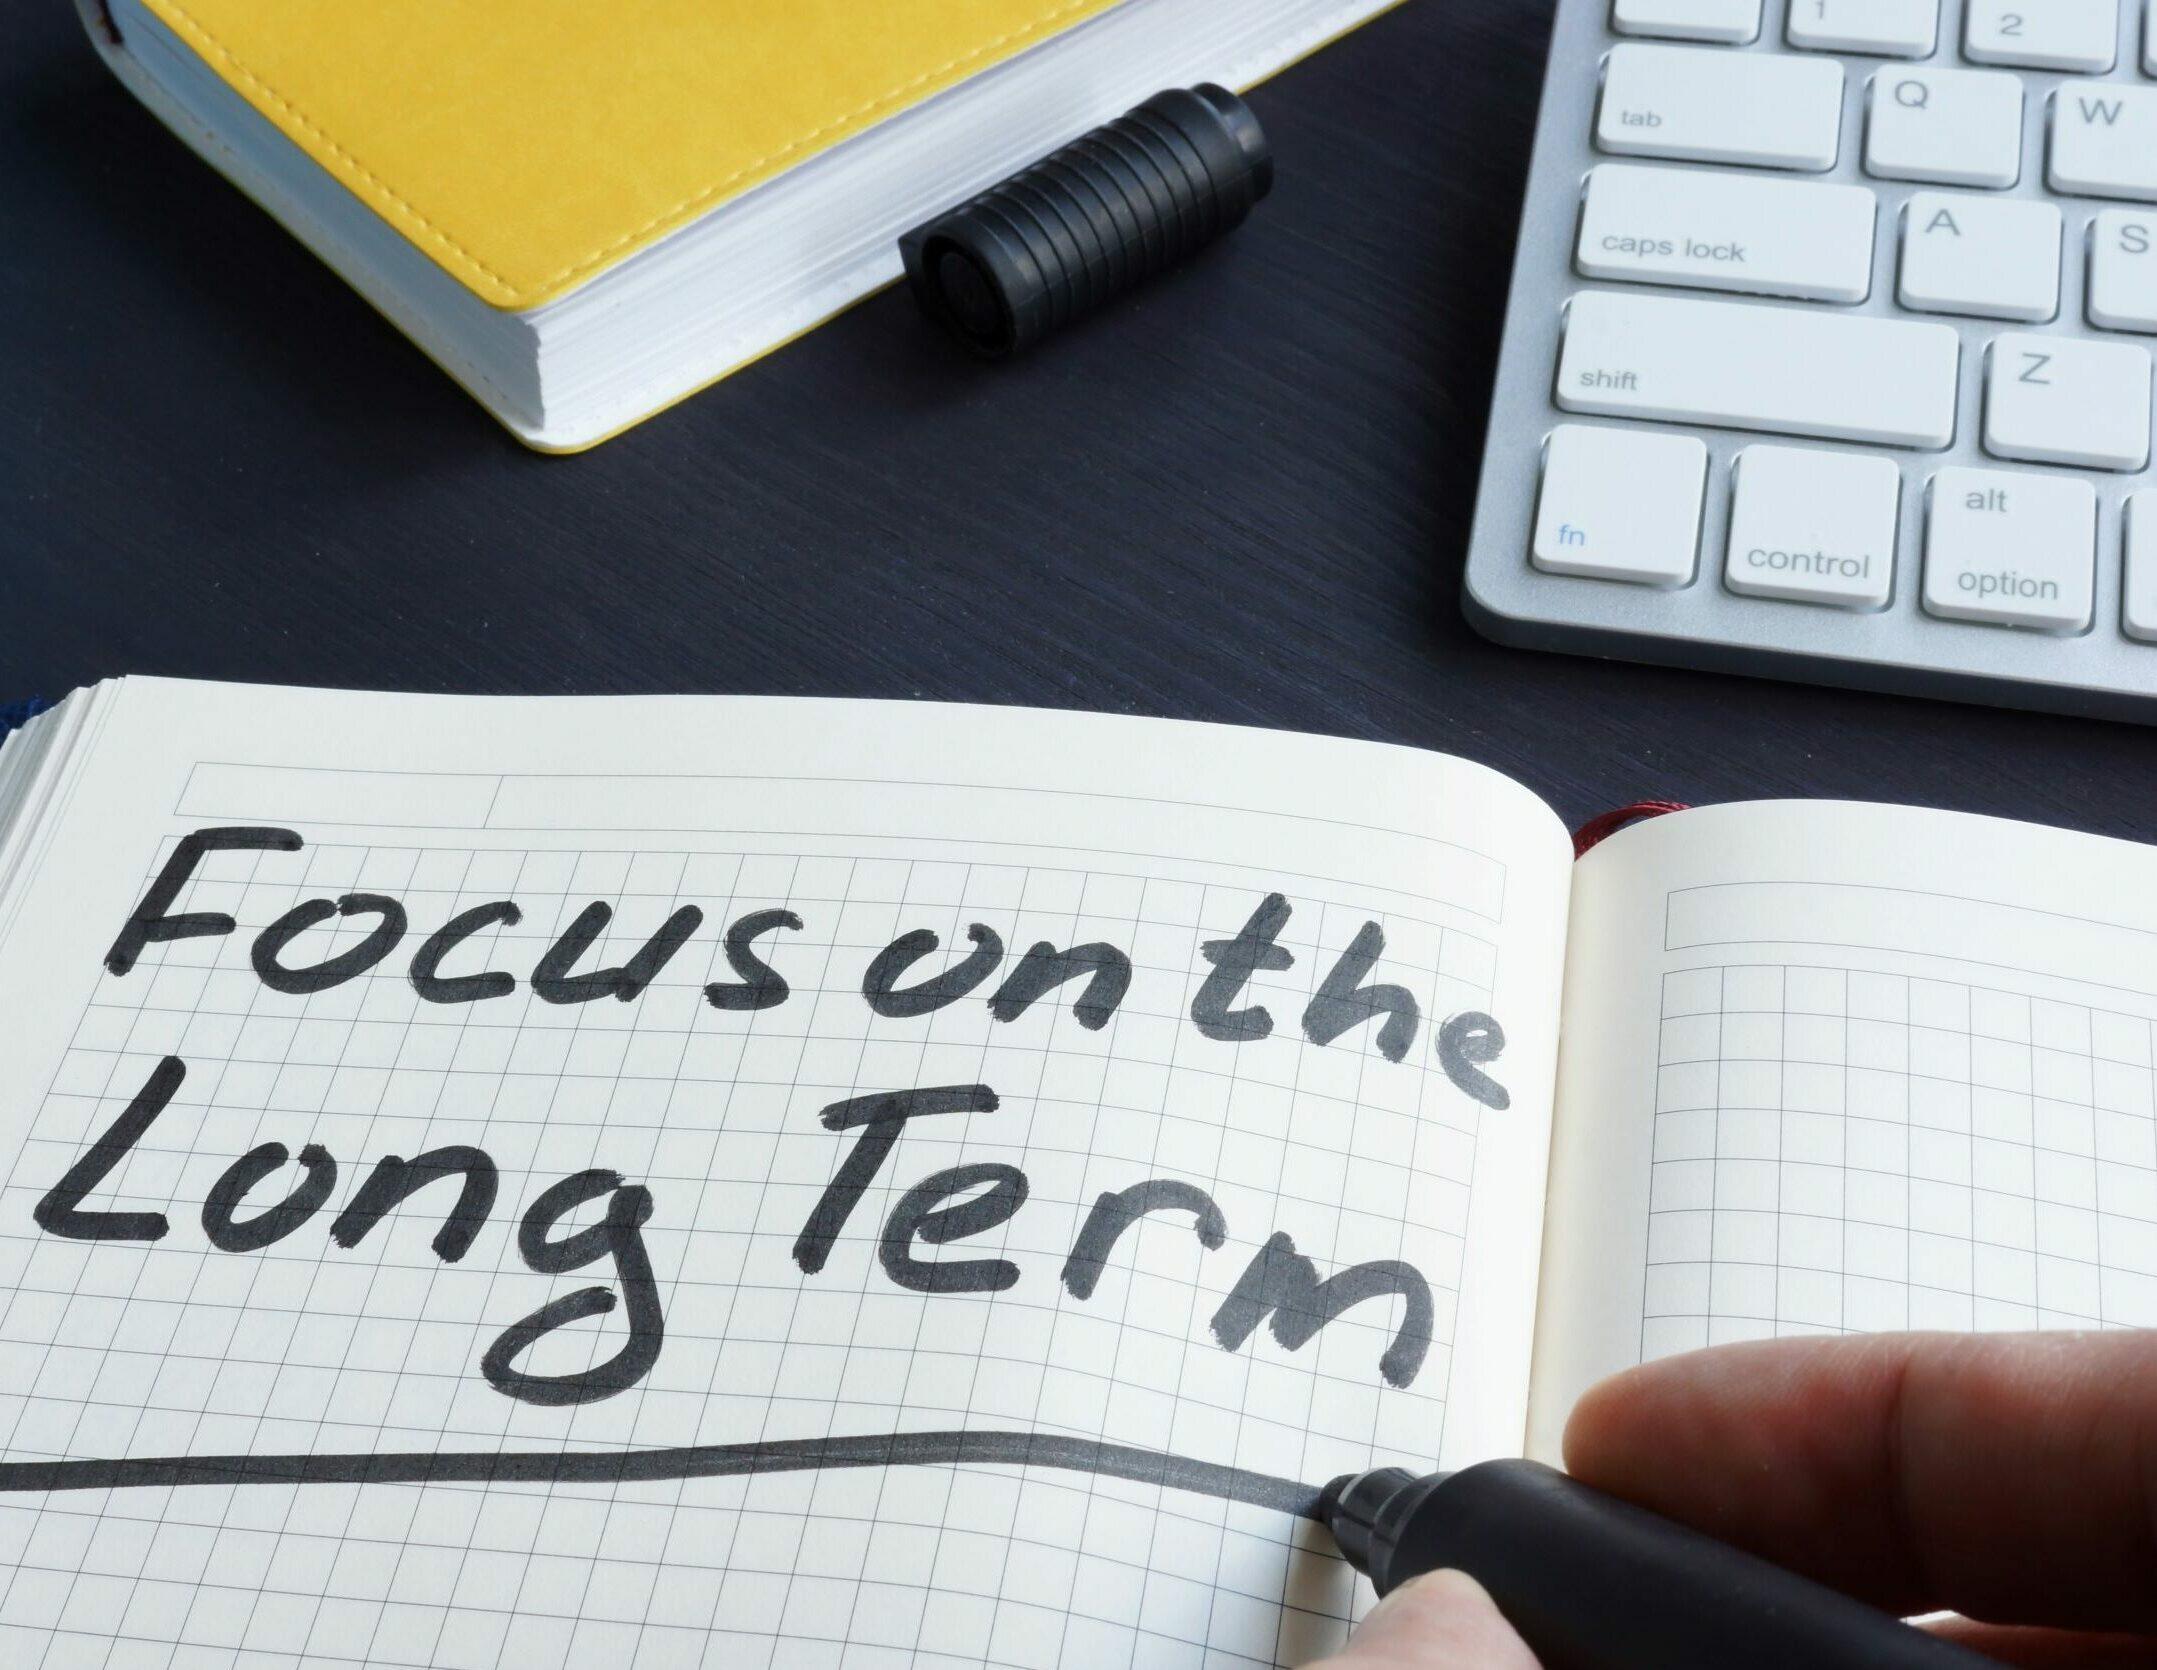 1
2
tab
Q
W
caps lock
A
S
shift
Z
fn
control
alt
option
Focus on the
Long Term